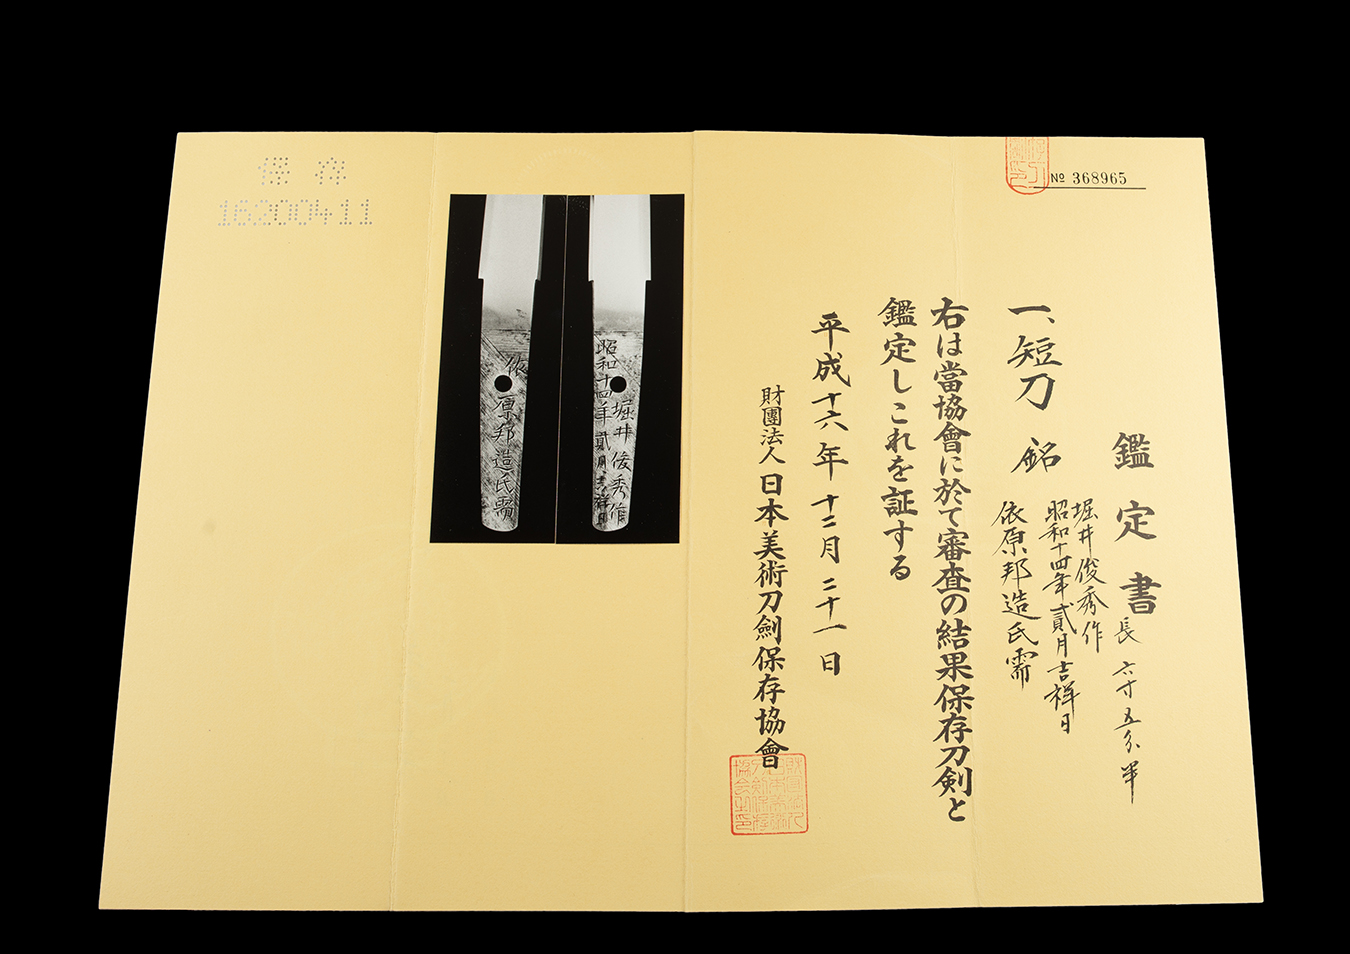 № 368965
鑑定書
長 六寸五分半
一、短刀 銘
堀井俊秀作
昭和十四年貳月吉祥日
依原邦造氏需
右は當協會に於て審査の結果保存刀剣と
鑑定しこれを証する
平成十六年十二月二十一日
財團法人日本美術刀劍保存協會
昭和十四年貳月吉祥日
堀井俊秀作
依原邦造氏需
保存
16200411